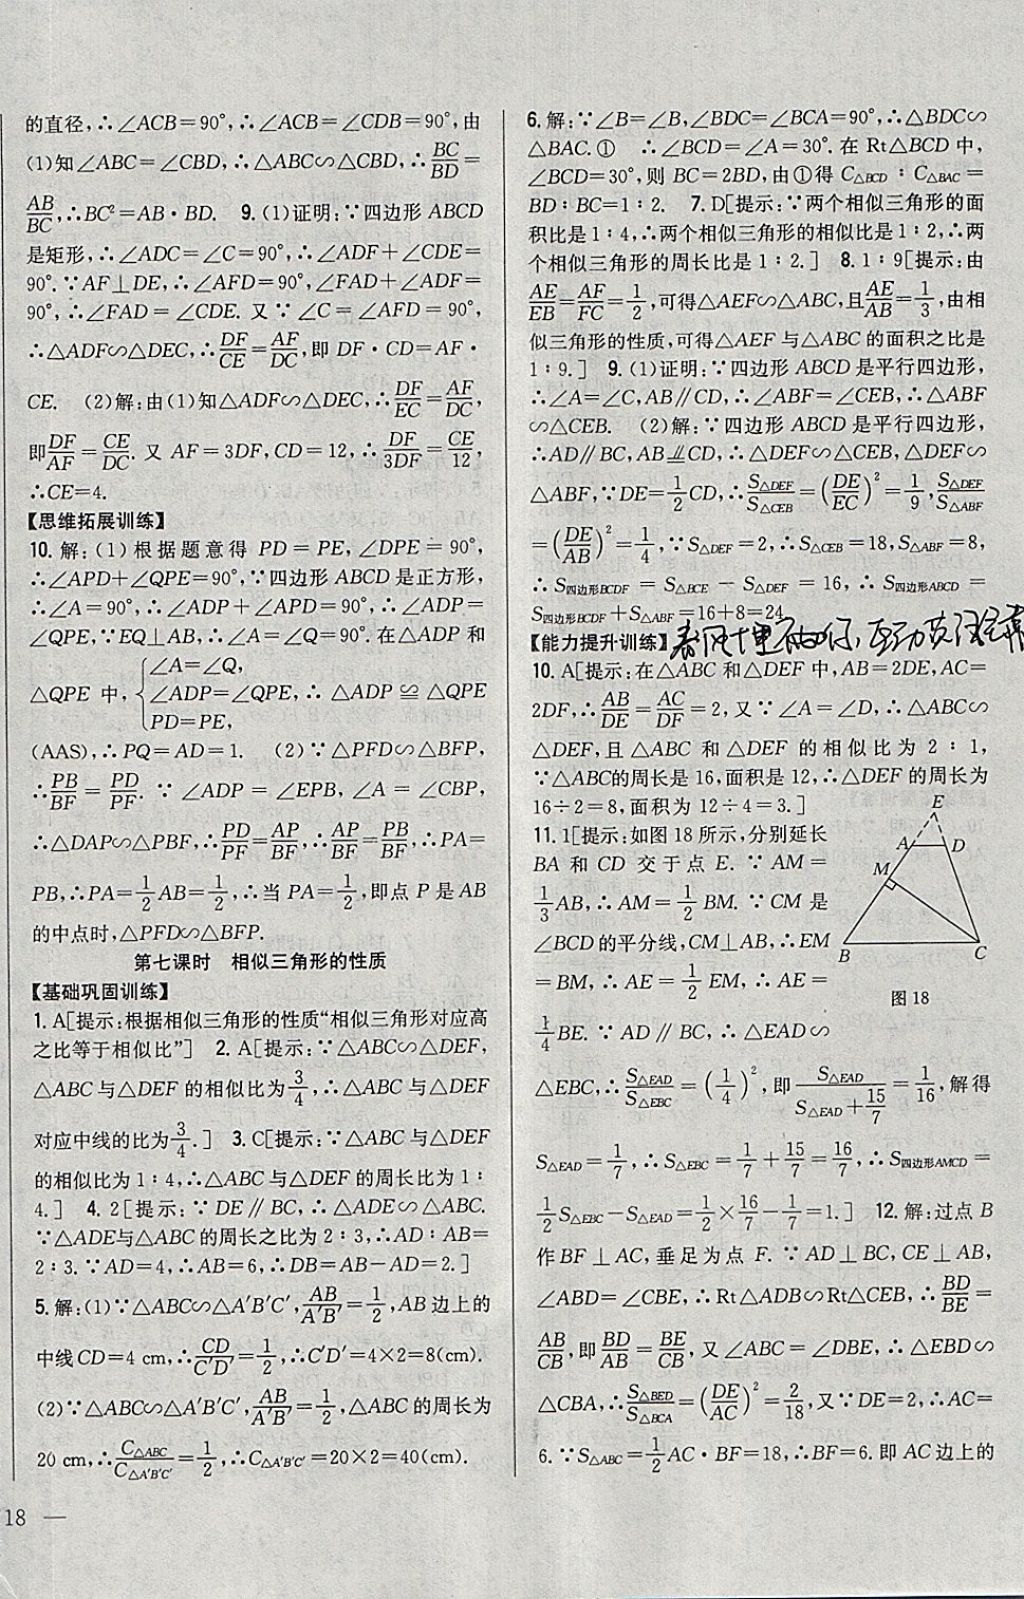 的直径,∴∠ACB=90°,∴∠ACB=∠CDB=90°,由
(1)知∠ABC=∠CBD,∴△ABC∽△CBD,∴BC/BD=
AB/BC,∴BC²=AB·BD. 9.(1)证明:∵四边形ABCD
是矩形,∴∠ADC=∠C=90°,∴∠ADF+∠CDE=
90°.∵AF⊥DE,∴∠AFD=90°,∠FAD+∠ADF=
90°,∴∠FAD=∠CDE.又∵∠C=∠AFD=90°,
∴△ADF∽△DEC,∴DF/CE=AF/DC,即DF·CD=AF·
CE. (2)解:由(1)知△ADF∽△DEC,∴DF/EC=AF/DC,
即DF/AF=CE/DC.又AF=3DF,CD=12,∴DF/3DF=CE/12,
∴CE=4.
【思维拓展训练】
10.解:(1)根据题意得PD=PE,∠DPE=90°,
∴∠APD+∠QPE=90°,∵四边形ABCD是正方形,
∴∠A=90°,∴∠ADP+∠APD=90°,∴∠ADP=
∠QPE,∵EQ⊥AB,∴∠A=∠Q=90°.在△ADP和
△QPE中,{∠A=∠Q,
∠ADP=∠QPE,∴△ADP≌△QPE
PD=PE,
(AAS),∴PQ=AD=1. (2)∵△PFD∽△BFP,
∴PB/BF=PD/PF.∵∠ADP=∠EPB,∠A=∠CBP,
∴△DAP∽△PBF,∴PD/PF=AP/BF,∴AP/BF=PB/BF,∴PA=
PB,∴PA=1/2AB=1/2,∴当PA=1/2,即点P是AB
的中点时,△PFD∽△BFP.
第七课时 相似三角形的性质
【基础巩固训练】
1.A[提示:根据相似三角形的性质“相似三角形对应高
之比等于相似比”] 2.A[提示:∵△ABC∽△DEF,
△ABC与△DEF的相似比为3/4,∴△ABC与△DEF
对应中线的比为3/4.] 3.C[提示:∵△ABC与△DEF
的相似比为1∶4,∴△ABC与△DEF的周长比为1∶
4.] 4.2[提示:∵DE∥BC,∴△ADE∽△ABC.
∵△ADE与△ABC的周长之比为2∶3,∴AD∶AB=
2∶3.∵AD=4,∴AB=6,∴DB=AB-AD=2.]
5.解:(1)∵△ABC∽△A′B′C′,AB/A′B′=1/2,AB边上的
中线CD=4 cm,∴CD/C′D′=1/2,∴C′D′=4×2=8(cm).
(2)∵△ABC∽△A′B′C′,AB/A′B′=1/2,△ABC的周长为
20 cm,∴C△ABC/C△A′B′C′=1/2,∴C△A′B′C′=20×2=40(cm).
18 —
6.解:∵∠B=∠B,∠BDC=∠BCA=90°,∴△BDC∽
△BAC.① ∴∠BCD=∠A=30°.在Rt△BCD中,
∠BCD=30°,则BC=2BD,由①得C△BCD∶C△BAC=
BD∶BC=1∶2. 7.D[提示:∵两个相似三角形的面
积比是1∶4,∴两个相似三角形的相似比是1∶2,∴两
个相似三角形的周长比是1∶2.] 8.1∶9[提示:由
AE/EB=AF/FC=1/2,可得△AEF∽△ABC,且AE/AB=1/3,由相
似三角形的性质,可得△AEF与△ABC的面积之比是
1∶9.] 9.(1)证明:∵四边形ABCD是平行四边形,
∴∠A=∠C,AB∥CD,∴∠ABF=∠CEB,∴△ABF
∽△CEB. (2)解:∵四边形ABCD是平行四边形,
∴AD∥BC,AB⫽CD,∴△DEF∽△CEB,△DEF∽
△ABF,∵DE=1/2CD,∴S△DEF/S△CEB=(DE/EC)²=1/9,S△DEF/S△ABF
=(DE/AB)²=1/4,∵S△DEF=2,∴S△CEB=18,S△ABF=8,
∴S四边形BCDF=S△BCE-S△DEF=16,∴S四边形ABCD=
S四边形BCDF+S△ABF=16+8=24.
【能力提升训练】
10.A[提示:在△ABC和△DEF中,AB=2DE,AC=
2DF,∴AB/DE=AC/DF=2,又∵∠A=∠D,∴△ABC∽
△DEF,且△ABC和△DEF的相似比为2∶1,
∵△ABC的周长是16,面积是12,∴△DEF的周长为
16÷2=8,面积为12÷4=3.]
11.1[提示:如图18所示,分别延长
BA和CD交于点E.∵AM=
1/3AB,∴AM=1/2BM.∵CM是
∠BCD的平分线,CM⊥AB,∴EM
=BM,∴AE=1/2EM,∴AE=
1/4BE.∵AD∥BC,∴△EAD∽
E
A
D
M
B
C
图18
△EBC,∴S△EAD/S△EBC=(1/4)²,即S△EAD/(S△EAD+15/7)=1/16,解得
S△EAD=1/7,∴S△EBC=1/7+15/7=16/7,∴S四边形AMCD=
1/2S△EBC-S△EAD=1/2×16/7-1/7=1.] 12.解:过点B
作BF⊥AC,垂足为点F.∵AD⊥BC,CE⊥AB,
∠ABD=∠CBE,∴Rt△ADB∽Rt△CEB,∴BD/BE=
AB/CB,即BD/AB=BE/CB,又∠ABC=∠DBE,∴△EBD∽
△CBA,∴S△BED/S△BCA=(DE/AC)²=2/18,又∵DE=2,∴AC=
6.∵S△ABC=1/2AC·BF=18,∴BF=6.即AC边上的